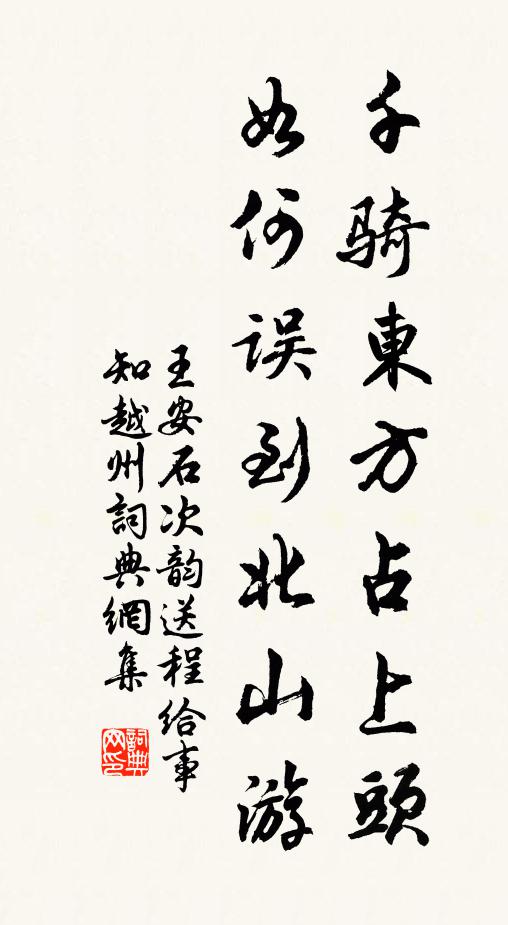 千骑東方占上頭
如何误到北山游
王安石次韵送程给事
知越州詞典網集
詞典
网印